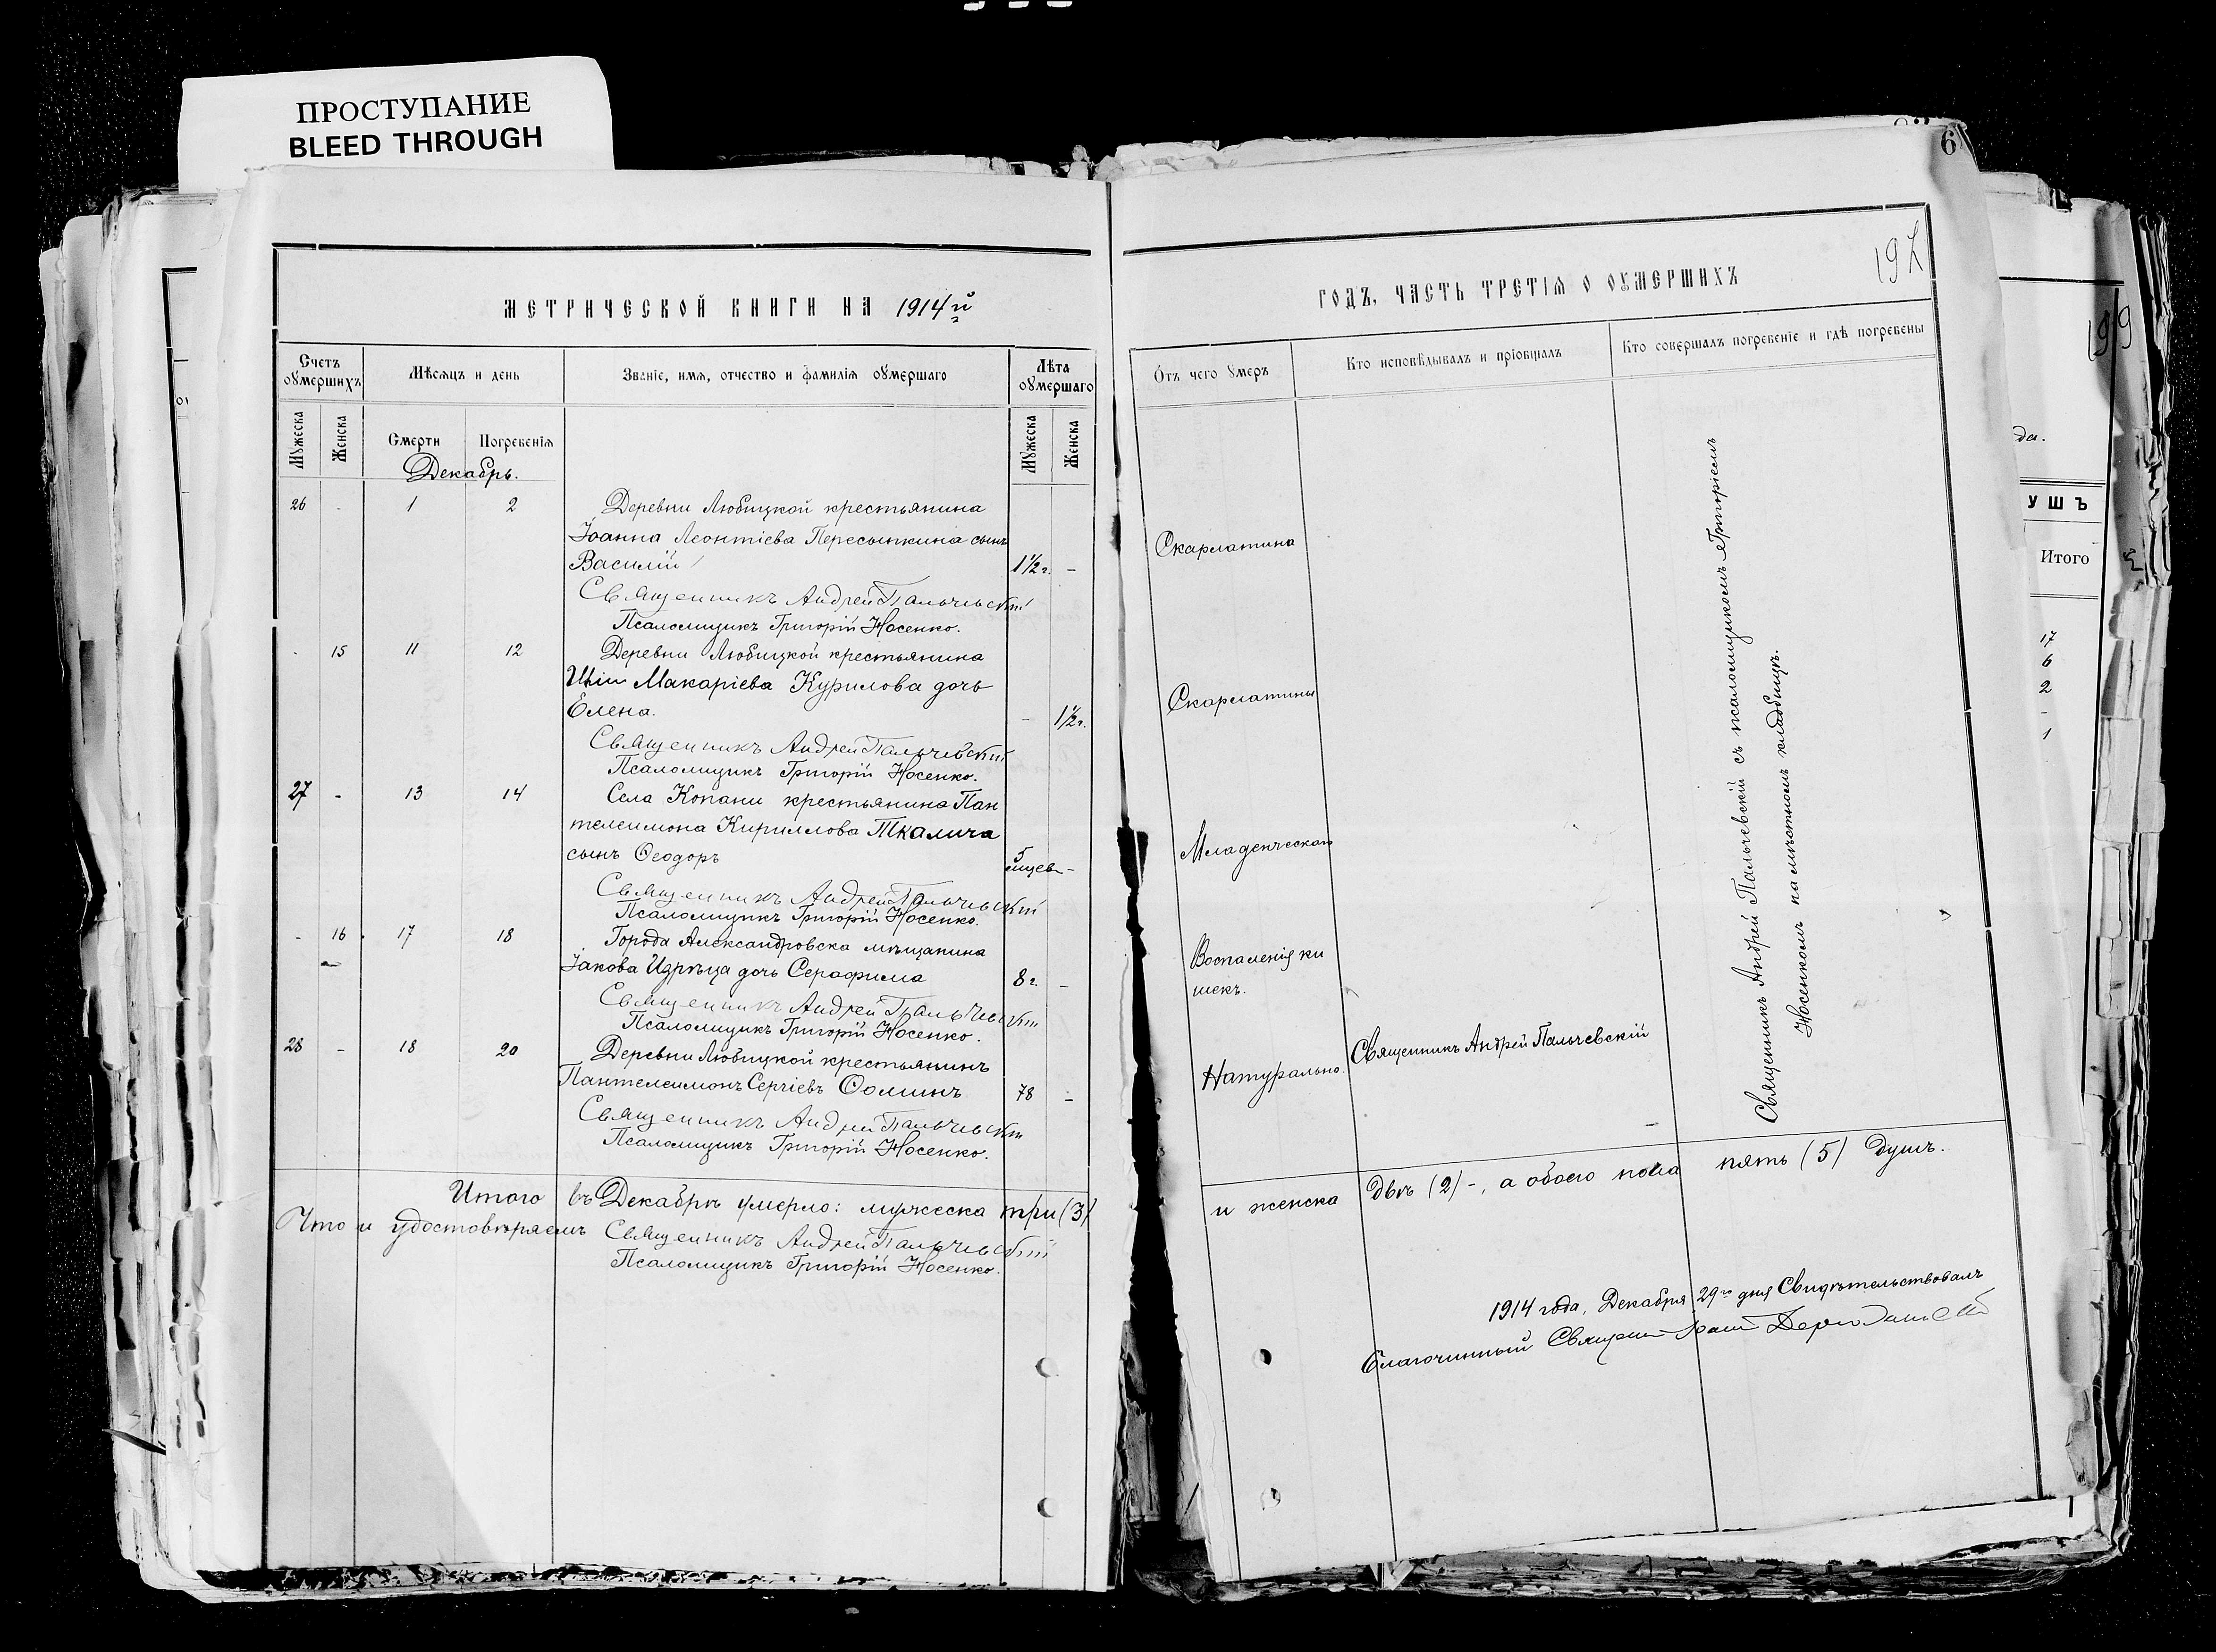 ПРОСТУПАНИЕ
BLEED THROUGH
МЕТРИЧЕСКОЙ КНИГИ НА 1914й
Счетъ оумершихъ
Мѣсяцъ и день
Званіе, имя, отчество и фамилія оумершаго
Лѣта оумершаго
Мужеска
Женска
Смерти
Погребенія
Мужеска
Женска
Декабрь.
26 - 1 2 Деревни Любицкой крестьянина
Іоанна Леонтіева Пересыпкина сынъ
Василій 1½ г. -
Священникъ Андрей Пальчевскій
Псаломщикъ Григорій Носенко.
- 15 11 12 Деревни Любицкой крестьянина
Макаріева Курилова дочь
Елена. - 1½ г.
Священникъ Андрей Пальчевскій
Псаломщикъ Григорій Носенко.
27 - 13 14 Села Копани крестьянина Пан
телеимона Кириллова Ткалича
сынъ Ѳеодоръ 5 мцев -
Священникъ Андрей Пальчевскій
Псаломщикъ Григорій Носенко.
- 16 17 18 Города Александровска мѣщанина
Іакова дочь Серафима 8 г. -
Священникъ Андрей Пальчевскій
Псаломщикъ Григорій Носенко.
28 - 18 20 Деревни Любицкой крестьянинъ
Пантелеимонъ Сергіевъ Ѳоминъ 78 -
Священникъ Андрей Пальчевскій
Псаломщикъ Григорій Носенко.
Итого въ Декабрѣ умерло: мужеска три (3)
Что и удостовѣряемъ Священникъ Андрей Пальчевскій
Псаломщикъ Григорій Носенко.
6
197
ГОДЪ, ЧАСТЬ ТРЕТІЯ О ОУМЕРШИХЪ
Отъ чего умеръ
Кто исповѣдывалъ и пріобщалъ
Кто совершалъ погребеніе и гдѣ погребены
Скарлатина
Скарлатины
Младенческая
Воспаленія ки
шекъ.
Натурально. Священникъ Андрей Пальчевскій
Священникъ Андрей Пальчевскій съ псаломщикомъ Григоріемъ
Носенкомъ на мѣстномъ кладбищѣ.
и женска двѣ (2) -, а обоего пола пять (5) душъ.
1914 года, Декабря 29го дня Свидѣтельствовалъ
Благочинный
199
да.
УШЪ
Итого
17
6
2
-
1